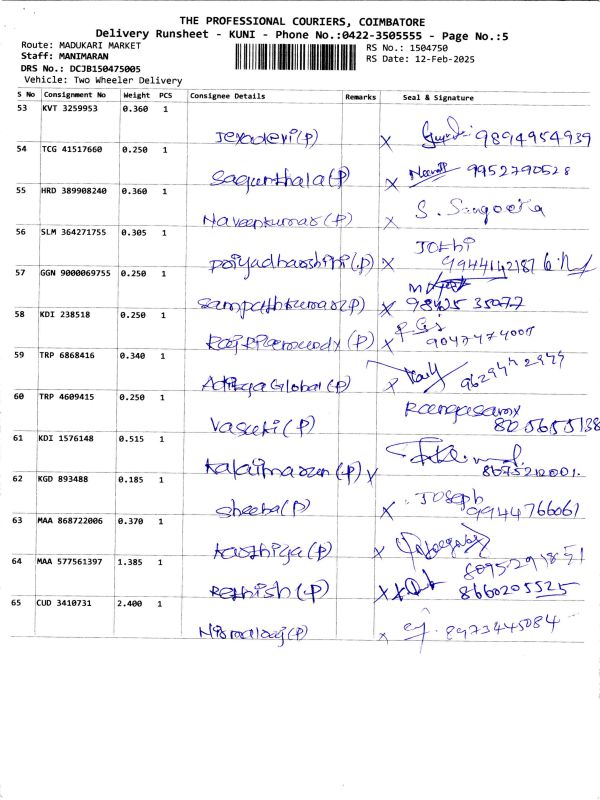 THE PROFESSIONAL COURIERS, COIMBATORE
Delivery Runsheet - KUNI - Phone No.:0422-3505555 - Page No.:5
Route: MADUKARI MARKET RS No.: 1504750
Staff: MANIMARAN RS Date: 12-Feb-2025
DRS No.: DCJB150475005
Vehicle: Two Wheeler Delivery
S No Consignment No Weight PCS Consignee Details Remarks Seal & Signature
53 KVT 3259953 0.360 1
Jeyadevi(P) X 9894954939
54 TCG 41517660 0.250 1
Sagunthala(P) X 9952790528
55 HRD 389908240 0.360 1
Naveenkumar(P) X S. Sangeetha
56 SLM 364271755 0.305 1
Jothi
Poiyadharshini(P) X 9944142187
57 GGN 9000069755 0.250 1
Sampathkumar(P) X 98425 35077
58 KDI 238518 0.250 1
(P) X 9047474000
59 TRP 6868416 0.340 1
Aditya Global(P) X 9629442949
60 TRP 4609415 0.250 1
Rangasamy
Vasuki(P) 805655138
61 KDI 1576148 0.515 1
Kalaimaran(P) X 8675212001.
62 KGD 893488 0.185 1
Joseph
Sheeba(P) X 9944766061
63 MAA 868722006 0.370 1
Karthiga(P) X
64 MAA 577561397 1.385 1
8095291851
Rethish(P) X 8660205525
65 CUD 3410731 2.400 1
Nirmalraj(P) X 8973445084